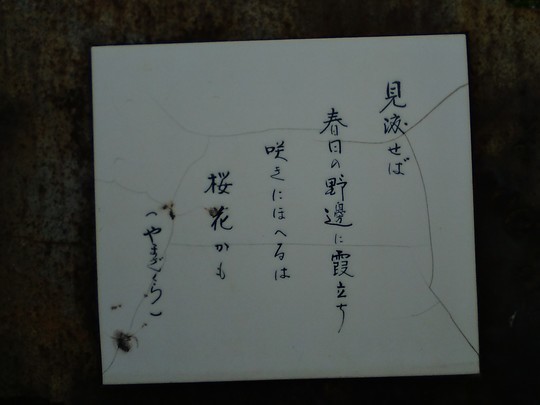 見渡せば
春日の野邊に霞立ち
咲きにほへるは
桜花かも
(やまざくら)